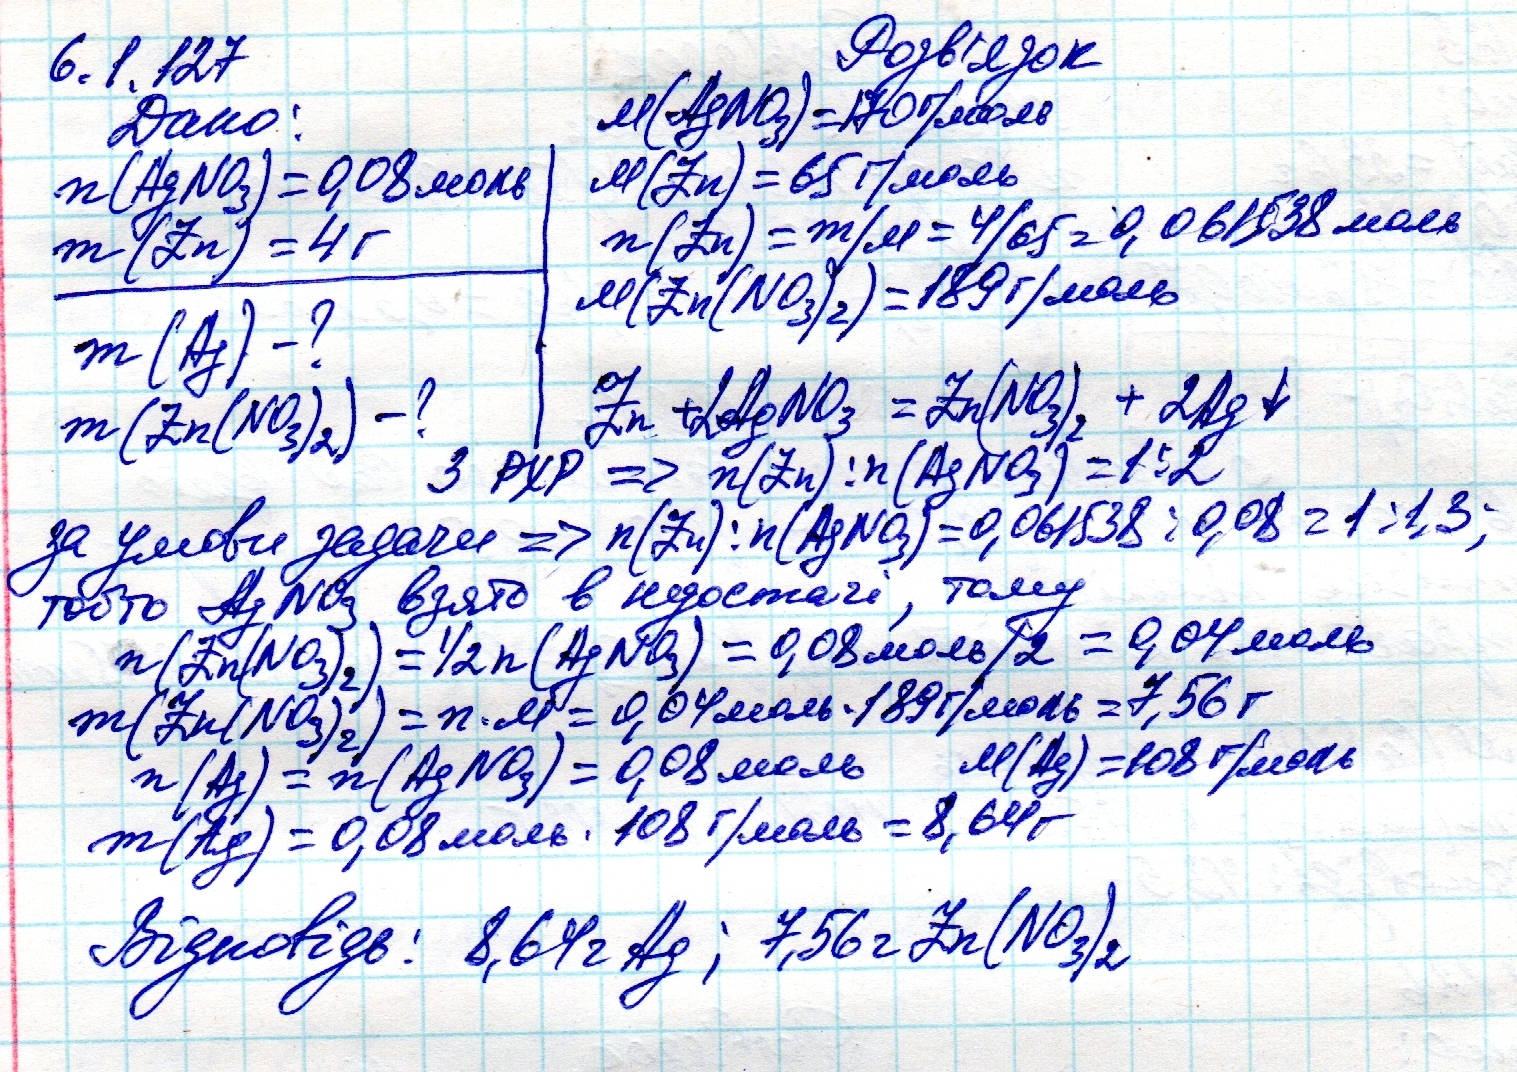 6.1.127
Дано:
n(AgNO3) = 0,08 моль
m(Zn) = 4 г
m(Ag) - ?
m(Zn(NO3)2) - ?
Розв'язок
M(AgNO3) = 170 г/моль
M(Zn) = 65 г/моль
n(Zn) = m/M = 4/65 = 0,061538 моль
M(Zn(NO3)2) = 189 г/моль
Zn + 2AgNO3 = Zn(NO3)2 + 2Ag↓
З РХР => n(Zn) : n(AgNO3) = 1 : 2
за умови задачи => n(Zn) : n(AgNO3) = 0,061538 : 0,08 = 1 : 1,3;
тобто AgNO3 взято в недостачі, тому
n(Zn(NO3)2) = 1/2 n(AgNO3) = 0,08 моль/2 = 0,04 моль
m(Zn(NO3)2) = n · M = 0,04 моль · 189 г/моль = 7,56 г
n(Ag) = n(AgNO3) = 0,08 моль M(Ag) = 108 г/моль
m(Ag) = 0,08 моль · 108 г/моль = 8,64 г
Відповідь: 8,64 г Ag; 7,56 г Zn(NO3)2